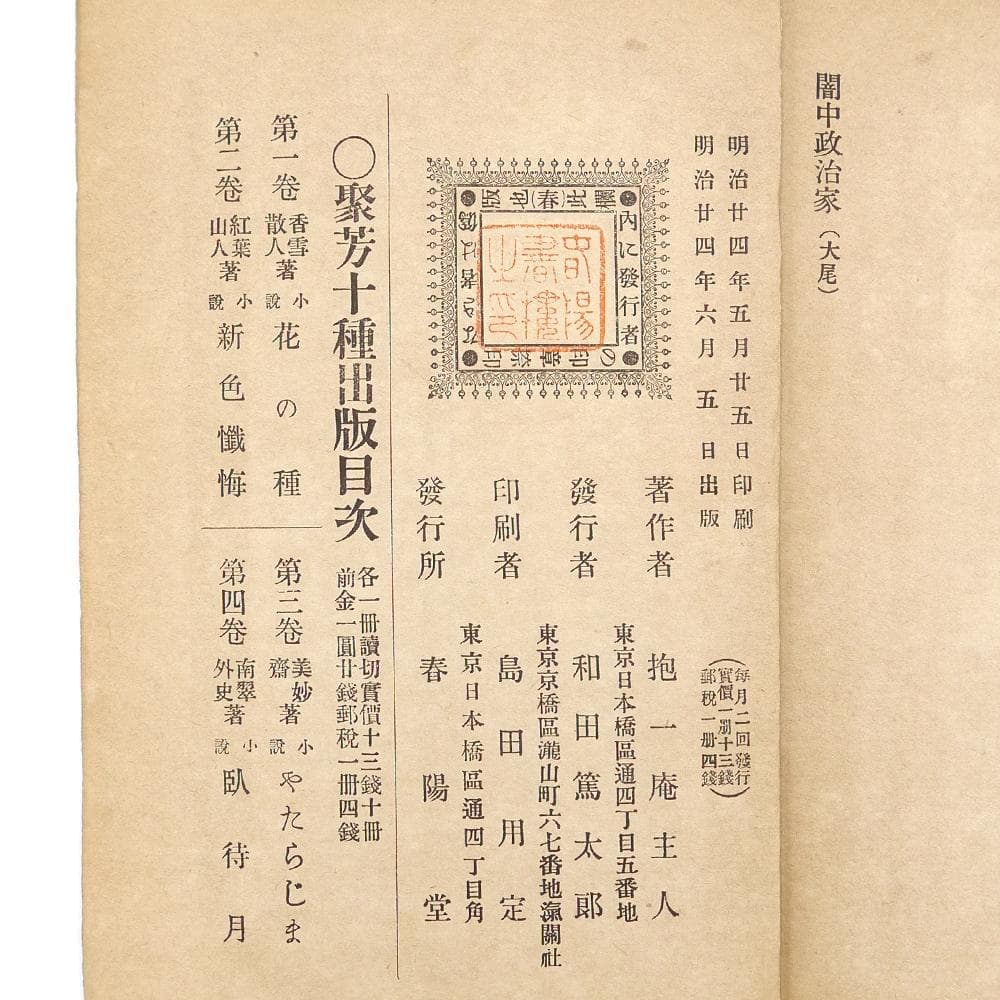 闇中政治家(大尾)
明治廿四年五月廿五日印刷
明治廿四年六月五日出版
(每月二回發行
實價一册十三錢
郵税一册四錢)
著作者 抱一庵主人
東京日本橋區通四丁目五番地
發行者 和田篤太郎
東京京橋區瀧山町六七番地瀛關社
印刷者 島田用定
東京日本橋區通四丁目角
發行所 春陽堂
內に發行者
の印章
春
〇聚芳十種出版目次
各一冊讀切實價十三錢十冊
前金一圓廿錢郵税一冊四錢
第一卷 香雪散人著 小說 花の種
第二卷 紅葉山人著 小說 新色懺悔
第三卷 美妙齋著 小說 やたらじま
第四卷 南翠外史著 小說 臥待月